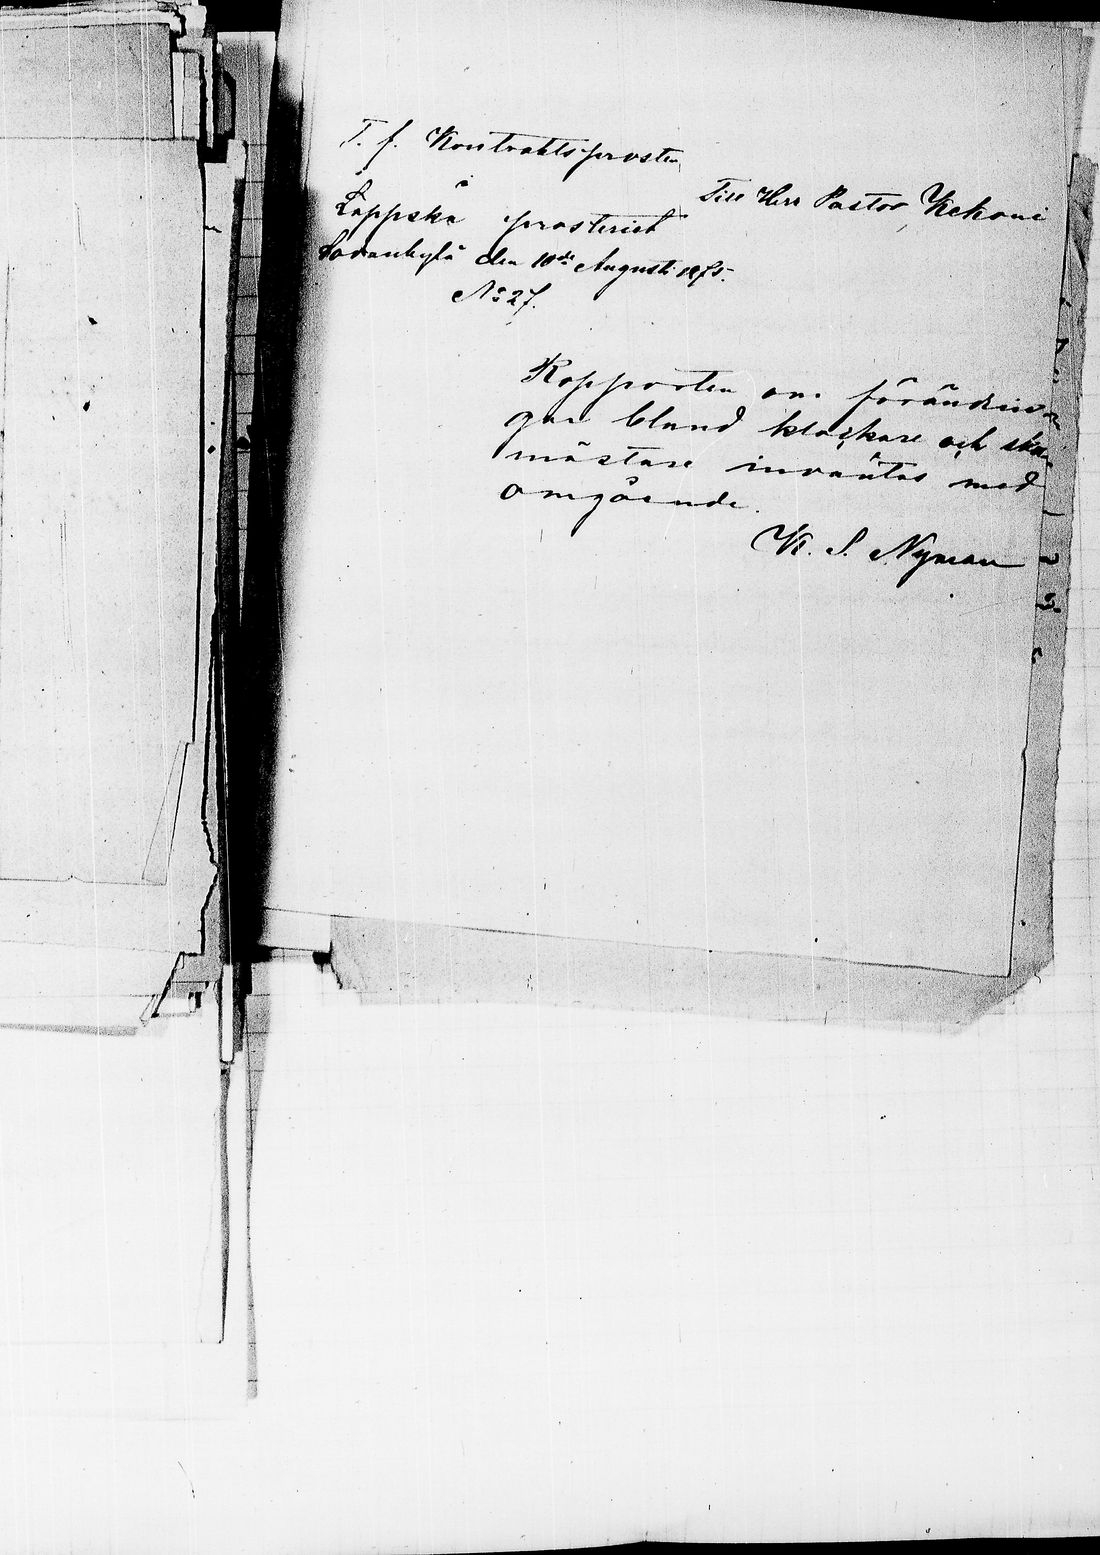 T. f. Kontraktsprosten
i
Lappska prosteriet
Sodankylä den 10de Augusti 1875.
No 27.
Till Herr Pastor Kekoni
Rapporten om förändrin-
gar bland klockare och skol
mästare inväntas med
omgående.
K. S. Nyman